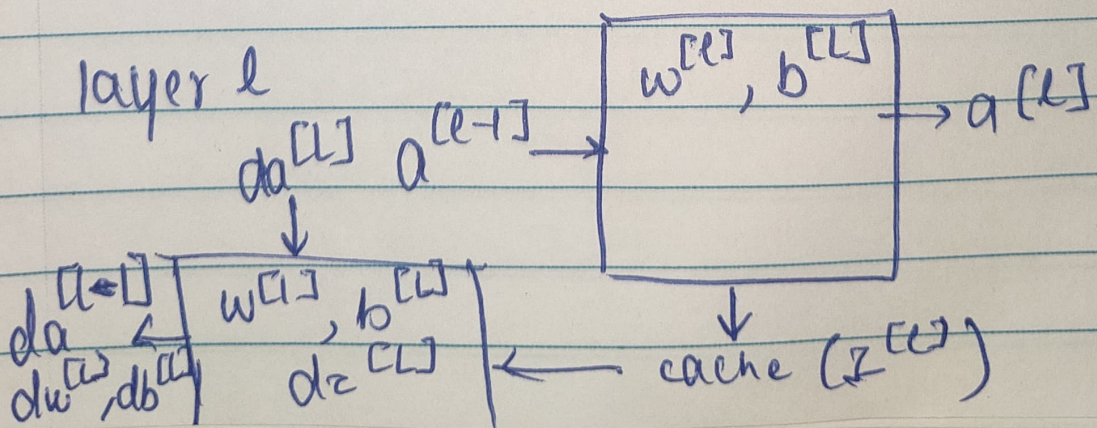 layer l
w^[l], b^[l]
da^[l] a^[l-1] → → a^[l]
da^[l-1] ← w^[l], b^[l]
dw^[l], db^[l] dz^[l] ← cache (z^[l])